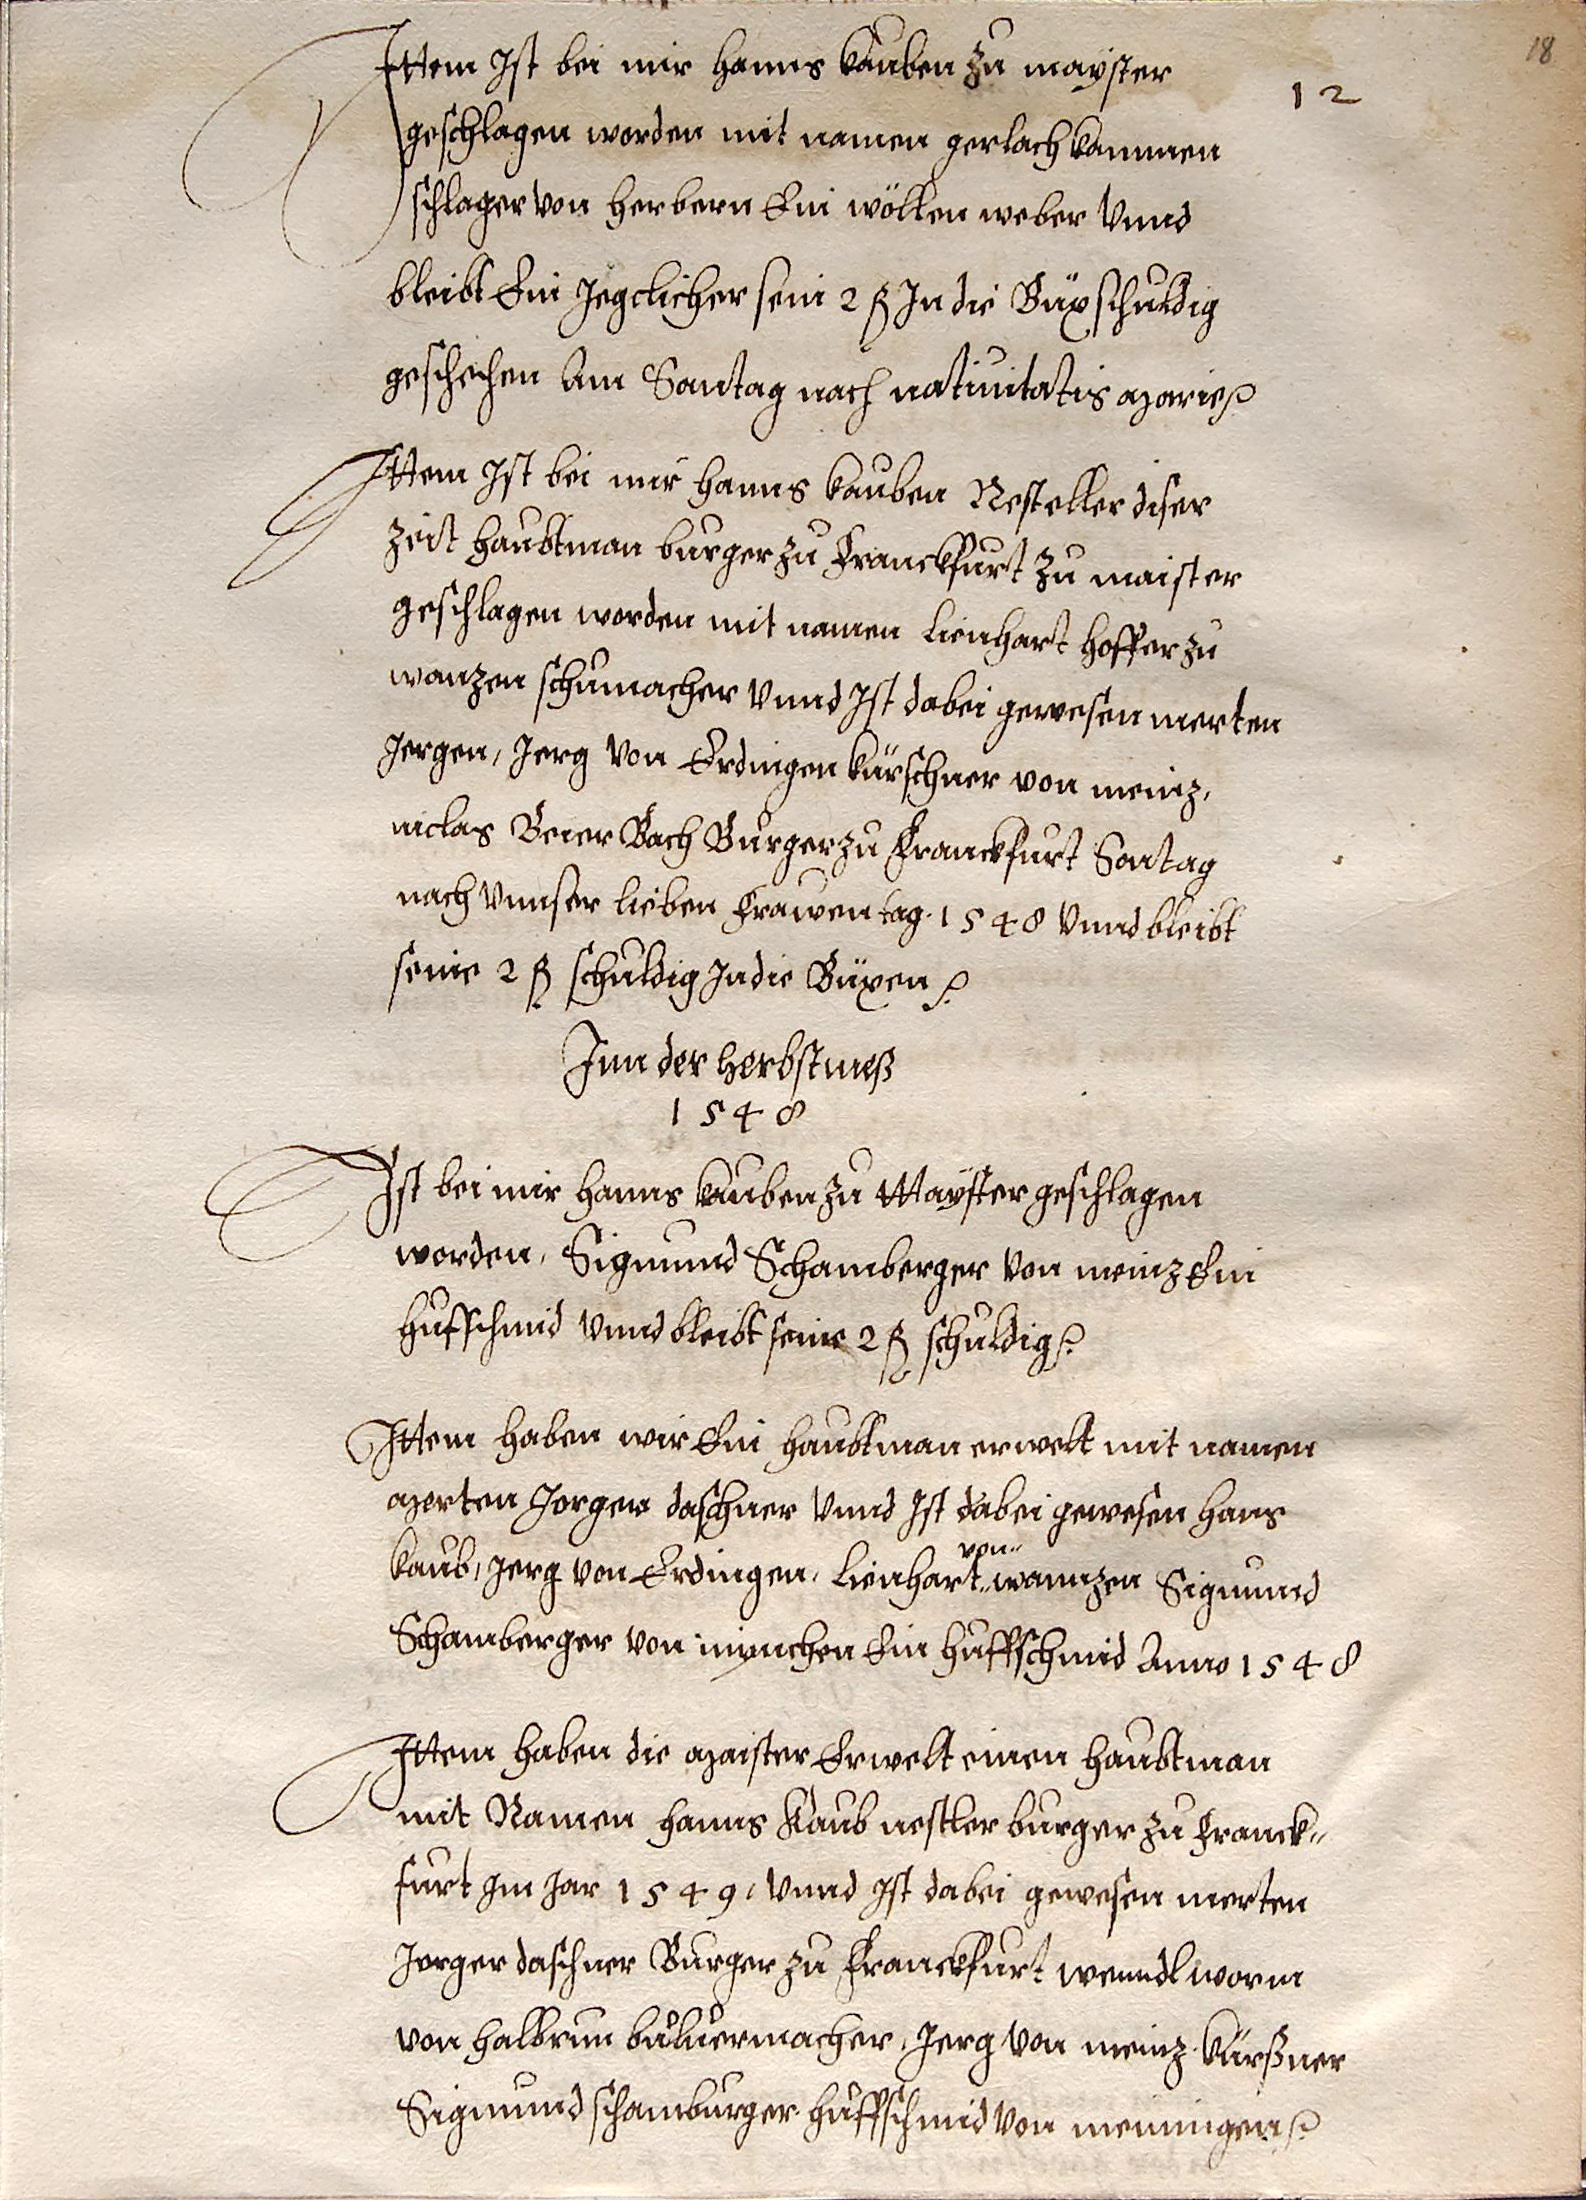 18
12
Ittem Ist bei mir Hanns Kauben zu mayster
geschlagen worden mit namen gerlach kannnen
schlager von Herbern Ein wöllen weber Vnnd
bleibt Ein Jegclicher sein 2 ß In die Büx schuldig
geschechen Am Sontag nach natiuitatis Marie
Ittem Ist bei mir Hanns Kauben Nesteller diser
Zeit Haubtman burger zu Franckfurt zu maister
geschlagen worden mit namen Lienhart Hoffer zu
wanzen schumacher Vnnd Ist dabei gewesen merten
Jergen, Jerg Von Erdingen kürschner von meinz,
niclas Beier Bach Burger zu Franckfurt Sontag
nach Vnnser lieben Frawen tag. 1548 Vnnd bleibt
seine 2 ß schuldig In die Büxen
Inn der Herbstmeß
1548
Ist bei mir Hanns Kauben zu Mayster geschlagen
worden, Sigmund Schamberger Von meinz Ein
Hufschmid Vnnd bleibt seine 2 ß schuldig
Ittem Haben wir Ein Haubtman erwelt mit namen
Merten Jorgen daschner Vnnd Ist dabei gewesen Hans
Kaub, Jerg von Erdingen, Lienhart von wannzen Sigmund
Schamberger von mynchen Ein Huffschmid Anno 1548
Ittem Haben die Maister Erwelt einen Haubtman
mit Namen Hanns Kaub nestler burger zu Franck"
furt Im Jar 1549, Vnnd Ist dabei gewesen merten
Jorger daschner Burger zu Franckfurt wenndl worm
von Halbrun buluermacher, Jerg Von meinz kürßner
Sigmund schamburger Huffschmid Von menningen